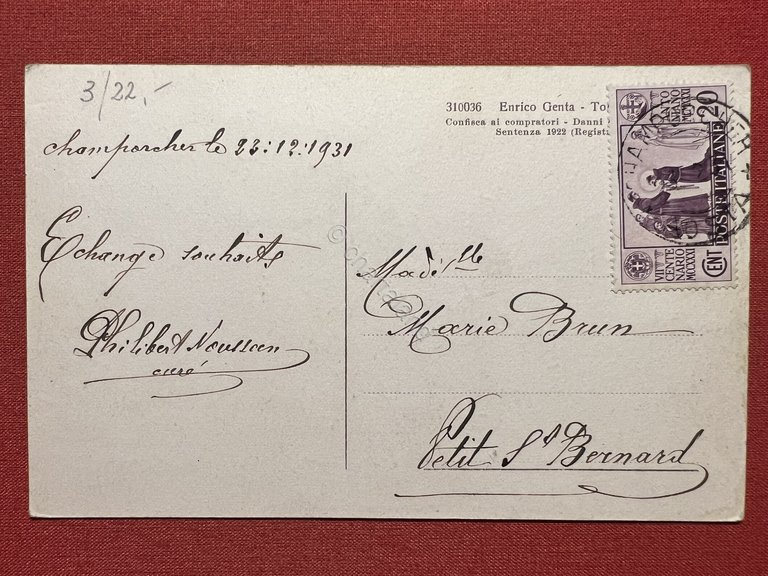 3/22,-
310036 Enrico Genta - To
Confisca ai compratori - Danni
Sentenza 1922 (Registr
Champorcher le 23:12:1931
Echange souhaits
Philibert Noussan
curé
Made lle
Marie Brun
Petit St Bernard
CENT 20
POSTE ITALIANE
VII CENTENARIO
MCCXXXI